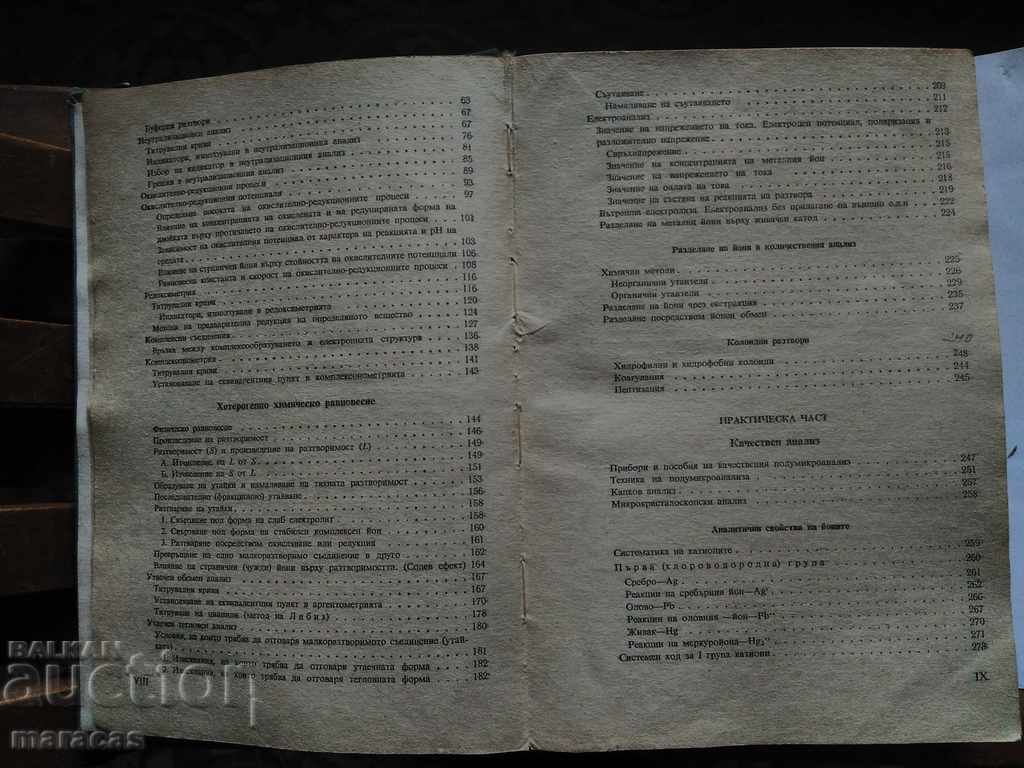 Буферни разтвори 63
Неутрализационен анализ 67
Титрувални криви 67
Индикатори, използувани в неутрализационния анализ 76
Избор на индикатор в неутрализационния анализ 81
Грешки в неутрализационния анализ 85
Окислително-редукционни процеси 89
Окислително-редукционни потенциали 93
Определяне посоката на окислително-редукционните процеси 97
Влияние на концентрацията на окислената и на редуцираната форма на
двойката върху протичането на окислително-редукционните процеси 101
Зависимост на окислителния потенциал от характера на реакцията и pH на
средата 103
Влияние на странични йони върху стойността на окислителните потенциали 106
Равновесна константа и скорост на окислително-редукционните процеси 108
Редоксиметрия 116
Титрувални криви 116
Индикатори, използувани в редоксиметрията 120
Методи на предварителна редукция на определяното вещество 124
Комплексни съединения 127
Връзка между комплексообразуването и електронната структура 136
Комплексонометрия 138
Титрувални криви 141
Установяване на еквивалентния пункт в комплексонометрията 143
Хетерогенно химическо равновесие
Физическо равновесие 144
Произведение на разтворимост 146
Разтворимост (S) и произведение на разтворимост (L) 149
А. Изчисление на L от S 149
Б. Изчисление на S от L 151
Образуване на утайки и намаляване на тяхната разтворимост 153
Последователно (фракционно) утаяване 156
Разтваряне на утайки 158
1. Свързване под форма на слаб електролит 158
2. Свързване под форма на стабилен комплексен йон 160
3. Разтваряне посредством окисляване или редукция 161
Превръщане на едно малкоразтворимо съединение в друго 162
Влияние на странични (чужди) йони върху разтворимостта. (Солев ефект) 164
Утаечен обемен анализ 167
Титрувални криви 167
Установяване на еквивалентния пункт в аргентометрията 170
Титруване на цианиди (метод на Либих) 178
Утаечен тегловен анализ 180
Условия, на които трябва да отговаря малкоразтворимото съединение (утай-
ката) 181
Изисквания, на които трябва да отговаря утаечната форма 182
Изисквания, на които трябва да отговаря тегловната форма 182
VIII
Съутаяване 209
Намаляване на съутаяването 211
Електроанализ 212
Значение на напрежението на тока. Електроден потенциал, поляризация и
разложително напрежение 213
Свръхнапрежение 215
Значение на концентрацията на металния йон 215
Значение на напрежението на тока 216
Значение на силата на тока 218
Значение на състава на реакцията на разтвора 219
Вътрешна електролиза. Електроанализ без прилагане на външно е.д.н. 222
Разделяне на метални йони върху живачен катод 224
Разделяне на йони в количествения анализ
Химични методи 225
Неорганични утаители 226
Органични утаители 229
Разделяне на йони чрез екстракция 235
Разделяне посредством йонен обмен 237
Колоидни разтвори 240
Хидрофилни и хидрофобни колоиди 248
Коагулация 244
Пептизация 245
ПРАКТИЧЕСКА ЧАСТ
Качествен анализ
Прибори и пособия на качествения полумикроанализ 247
Техника на полумикроанализа 251
Капков анализ 257
Микрокристалоскопски анализ 258
Аналитични свойства на йоните
Систематика на катионите 259
Първа (хлороводородна) група 260
Сребро—Ag 261
Реакции на сребърния йон—Ag˙ 262
Олово—Pb 266
Реакции на оловния —йон—Pb˙˙ 267
Живак—Hg 270
Реакции на меркуройона—Hg₂˙˙ 271
Системен ход за I група катиони 273
IX
BALKAN
auction
maracas